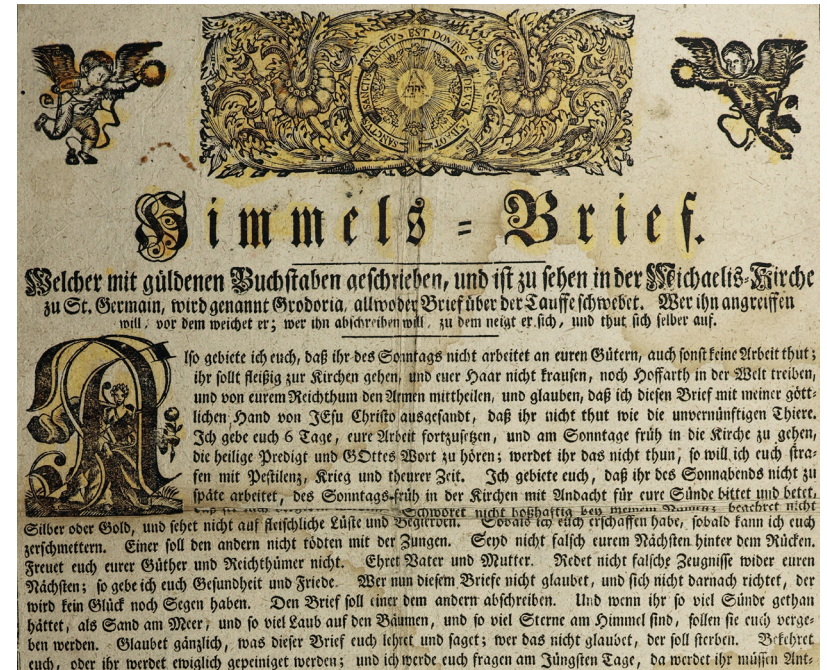 SANCTUS SANCTUS SANCTUS EST DOMINUS DEUS ZEBAOT
Himmels=Brief.
Welcher mit güldenen Buchstaben geschrieben, und ist zu sehen in der Michaelis-Kirche
zu St. Germain, wird genannt Grodoria, allwo der Brief über der Tauffe schwebet. Wer ihn angreiffen
will, vor dem weichet er; wer ihn abschreiben will, zu dem neigt er sich, und thut sich selber auf.
Also gebiete ich euch, daß ihr des Sonntags nicht arbeitet an euren Gütern, auch sonst keine Arbeit thut;
ihr sollt fleißig zur Kirchen gehen, und euer Haar nicht krausen, noch Hoffarth in der Welt treiben,
und von eurem Reichthum den Armen mittheilen, und glauben, daß ich diesen Brief mit meiner gött-
lichen Hand von JEsu Christo ausgesandt, daß ihr nicht thut wie die unvernünftigen Thiere.
Ich gebe euch 6 Tage, eure Arbeit fortzusetzen, und am Sonntage früh in die Kirche zu gehen,
die heilige Predigt und GOttes Wort zu hören; werdet ihr das nicht thun, so will ich euch stra-
fen mit Pestilenz, Krieg und theurer Zeit. Ich gebiete euch, daß ihr des Sonnabends nicht zu
späte arbeitet, des Sonntags-früh in der Kirchen mit Andacht für eure Sünde bittet und betet,
Schwöret nicht boßhaftig bey meinem Namen; begehret nicht
Silber oder Gold, und sehet nicht auf fleischliche Lüste und Begierden. Sobald ich euch erschaffen habe, sobald kann ich euch
zerschmettern. Einer soll den andern nicht tödten mit der Zungen. Seyd nicht falsch eurem Nächsten hinter dem Rücken.
Freuet euch eurer Güther und Reichthümer nicht. Ehret Vater und Mutter. Redet nicht falsche Zeugnisse wider euren
Nächsten; so gebe ich euch Gesundheit und Friede. Wer nun diesem Briefe nicht glaubet, und sich nicht darnach richtet, der
wird kein Glück noch Segen haben. Den Brief soll einer dem andern abschreiben. Und wenn ihr so viel Sünde gethan
hättet, als Sand am Meer, und so viel Laub auf den Bäumen, und so viel Sterne am Himmel sind, sollen sie euch verge-
ben werden. Glaubet gänzlich, was dieser Brief euch lehret und saget; wer das nicht glaubet, der soll sterben. Bekehret
euch, oder ihr werdet ewiglich gepeiniget werden; und ich werde euch fragen am Jüngsten Tage, da werdet ihr müssen Ant-